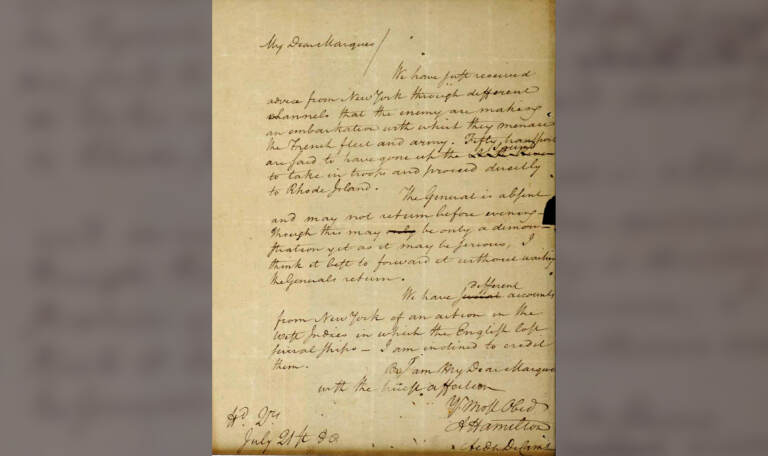 My Dear Marquis/
We have just received
advice from New York through different
channels that the enemy are making
an embarkation with which they menace
the French fleet and army. Fifty transports
are said to have gone up the Sound
to take in troops and proceed directly
to Rhode Island.
The General is absent
and may not return before evening—
Though this may only be only a demon-
stration yet as it may be serious, I
think it best to forward it without waiting
the Generals return.
different
We have several accounts
from New York of an action in the
West Indies in which the English lost
several ships — I am inclined to credit
them.
I am My Dear Marquis
with the truest affection
Yr Most Obed
A Hamilton
Aide De Camp
Hd. Qrs
July 21st 80